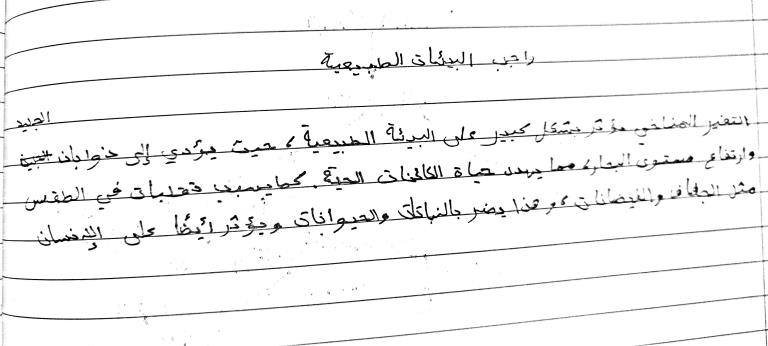 راجب البيئات الطبيعية
التغير المناخي مؤثر بشكل كبير على البيئة الطبيعية، حيث يؤدي إلى ذوابان الجليد
وارتفاع مستوى البحار، مما يهدد حياة الكائنات الحية. كما يسبب تقلبات في الطقس
مثل الجفاف والفيضانات، وهذا يضر بالنباتات والحيوانات ويؤثر أيضًا على الإنسان